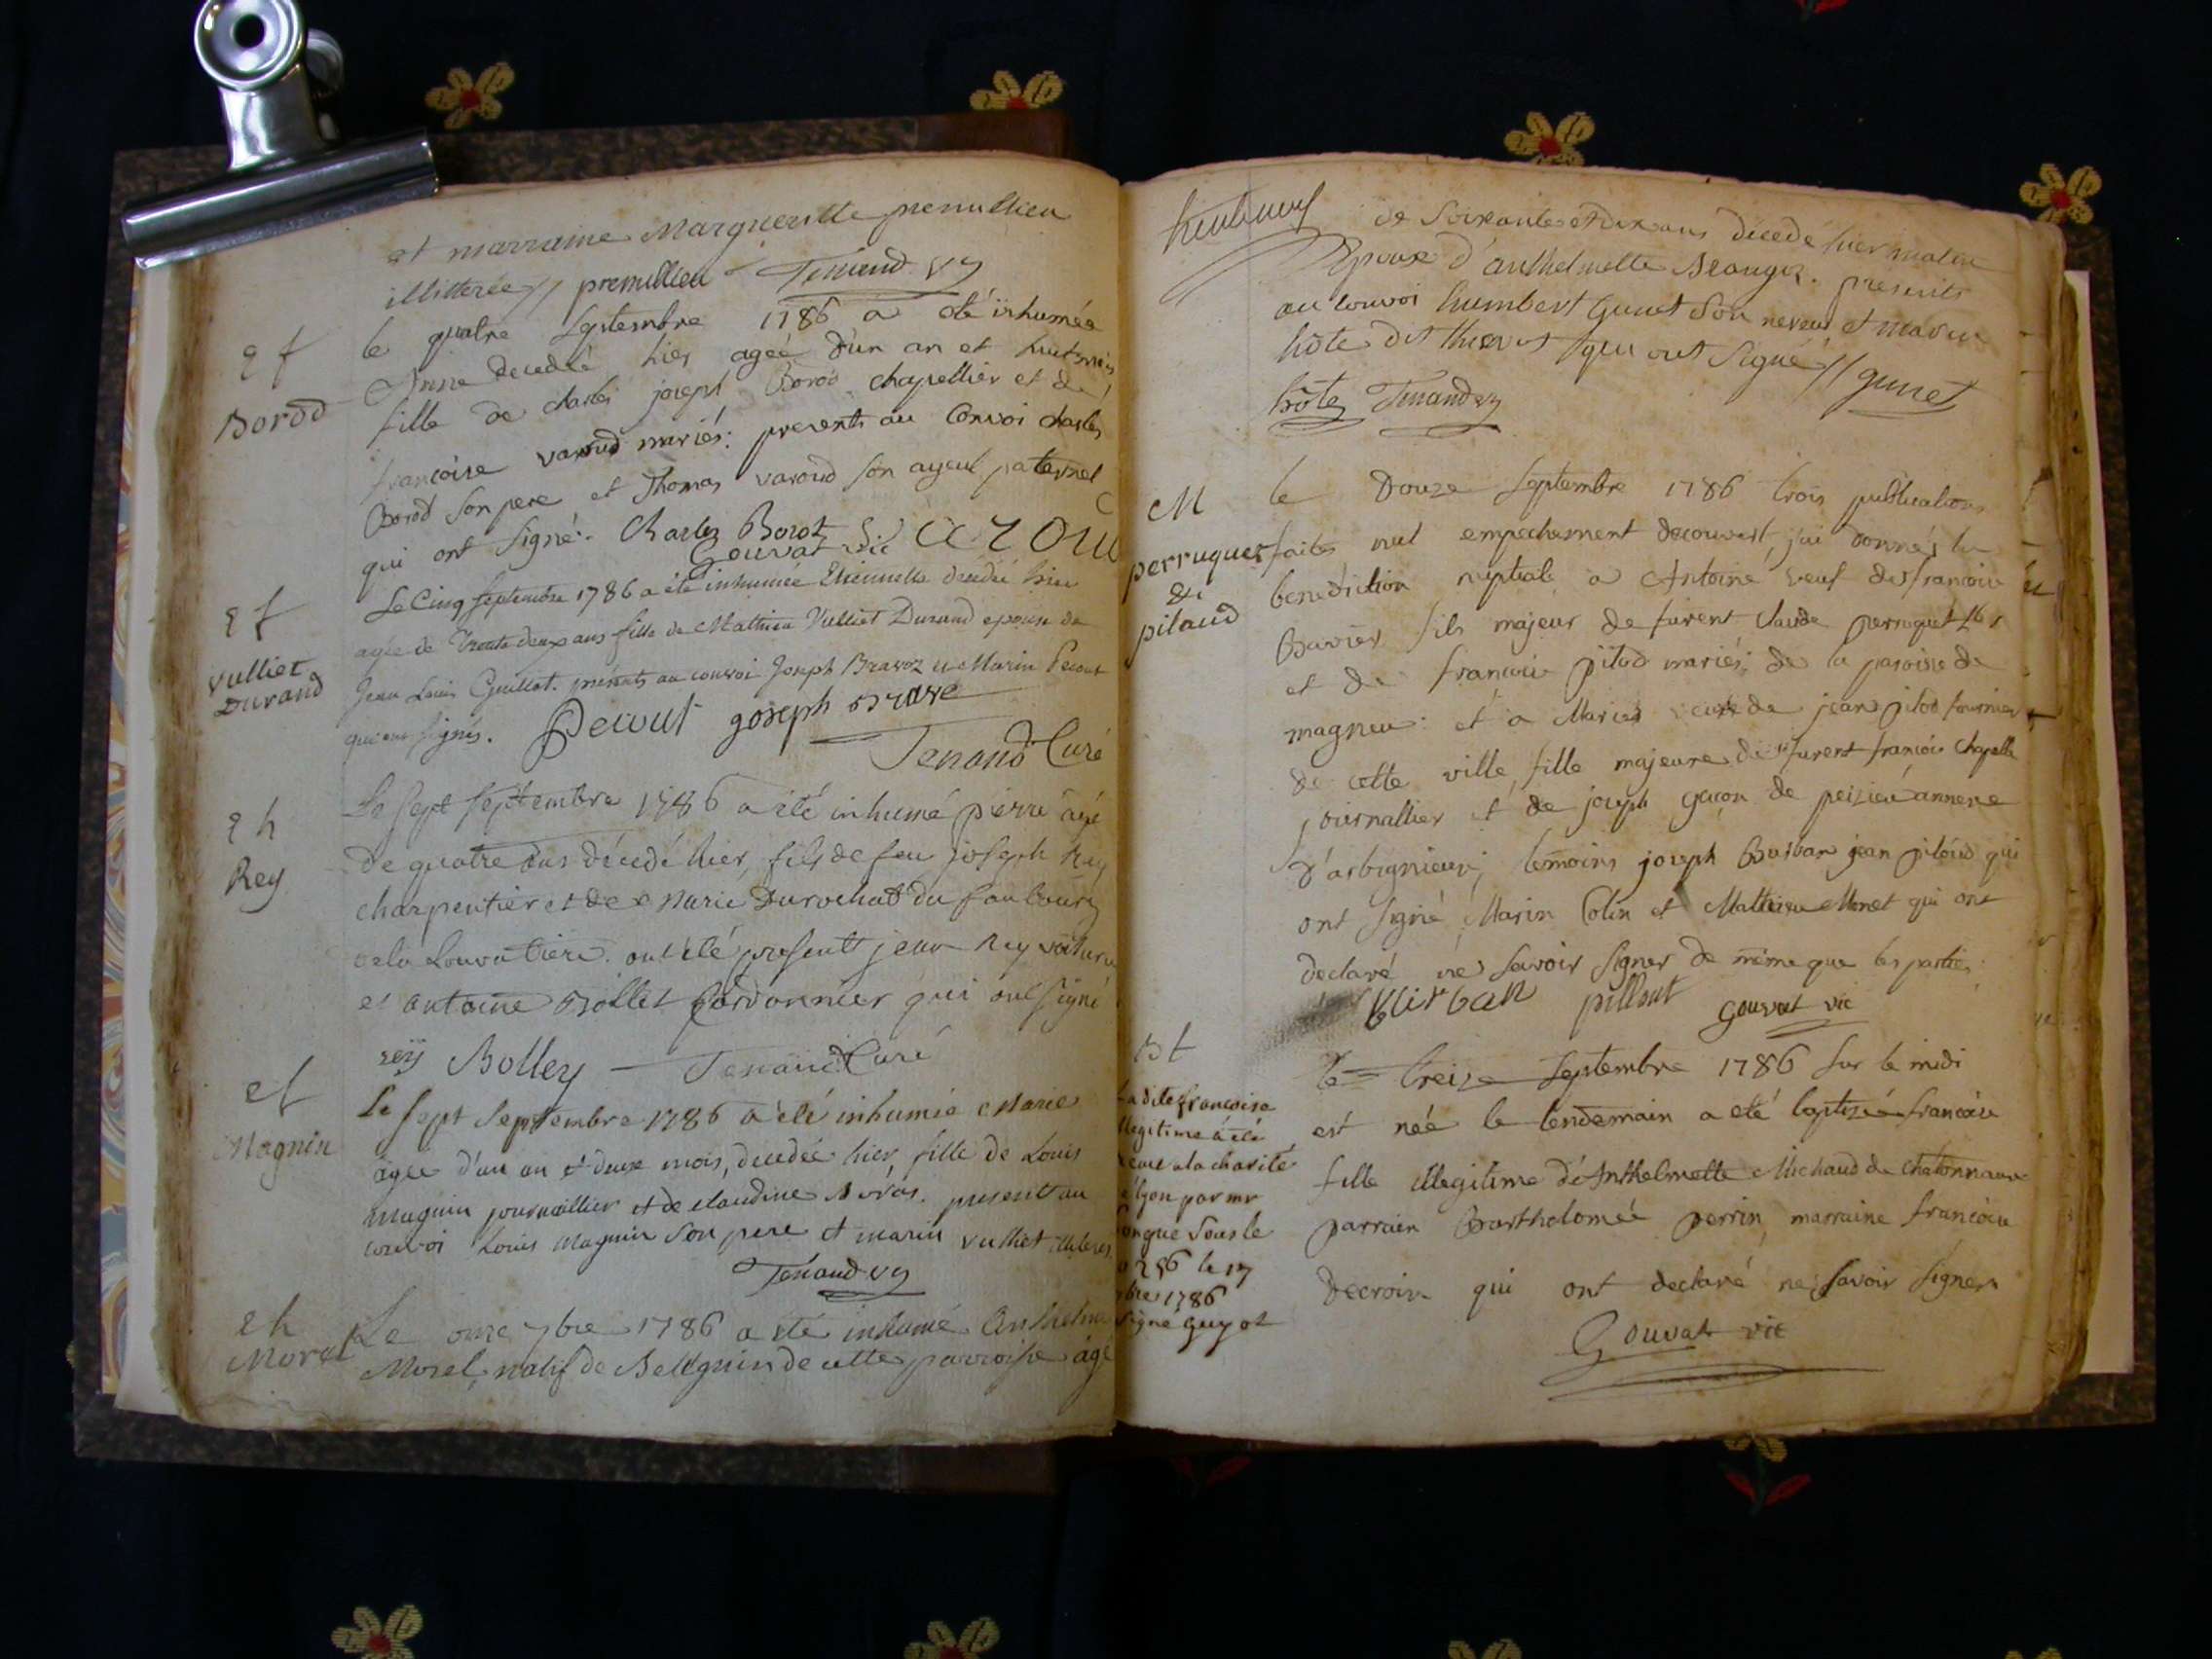 et marraine Marguerite premillieu
illitterée // premillieu Tenand vic
ef
Borod
le quatre septembre 1786 a été inhumée
Anne decedeé hier ageé d'un an et huit mois
fille de charles joseph Borod chapellier et de
francoise varoud mariés: presents au Convoi charles
Borod son pere et Thomas varoud son ayeul paternel
qui ont signé. Charles Borot
Gouvat vic
ef
vulliet
Durand
Le Cinq septembre 1786 a été inhumée Etiennette decedée hier
agée de Trente deux ans fille de Mathieu Vulliet Durand epouse de
Jean Louis Guillot. présents au convoi Joseph Bravoz et Marin Pecout
qui ont signés. Pecout joseph Brave
Tenand Curé
eh
Rey
Le sept septembre 1786 a été inhumé pierre agé
de quatre ans décedé hier, fils de feu joseph Rey
charpentier et de Marie Durochat du faubourg
de la Louvatiere. ont été present jean Rey
et antoine Bollet Cordonnier qui ont signé
reÿ Bolley Tenand Curé
ef
Magnin
Le sept septembre 1786 a été inhumée Marie
agée d'un an et deux mois, decedée hier, fille de Louis
magnin journallier et de claudine present au
convoi Louis magnin son pere et marin vulliet
Tenand vic
eh
Morel
Le onze 7bre 1786 a été inhumé Anthelme
Morel, natif de de cette parroisse agé
de soixante et dix ans décedé hier matin
Epoux d'anthelmette presents
au convoi humbert gunet son neveu et marin
hôte dit qui ont signé // gunet
hôte Tenand vic
M
perruquet
&
pitaud
le Douze septembre 1786 trois publications
faites nul empechement decouvert, j'ai donnés la
benediction nuptiale a Antoine veuf de francoise
Bavier, fils majeur de furent Claude perruquet
et de francoise pilod mariés; de la paroisse de
magneu: et a Marie veuve de jean pilod fournier
de cette ville, fille majeure de furent francois Chapelle
journallier et de joseph gacon de peizieu annexe
d'arbignieux; temoins joseph Burban jean pilōud qui
ont signé Marin Colin et Mathieu Monet qui ont
declaré ne savoir signer de même que les parties.
Burban pillout Gouvat vic
Bt
La dite francoise
illegitime à été
à la charité
lyon par mr
sous le
256 le 17
bre 1786
signé guyot
le treize septembre 1786 sur le midi
est née le lendemain a eté baptizée francoise
fille illegitime d'Anthelmette Michaud de chatonnaux
parrain Bartholomée perrin, marraine francoise
Decroix qui ont declaré ne savoir signer
Gouvat vic